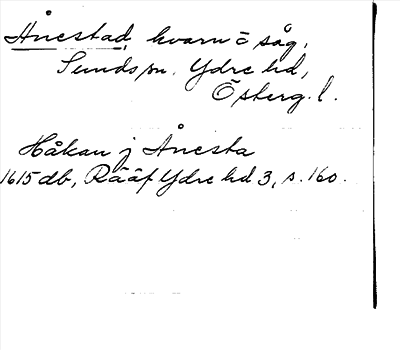 Ånestad, kvarn o såg,
Sunds sn. Ydre hd,
Östergl.
Håkan j Ånesta
1615 db, Rääf Ydre hd 3, s. 160.